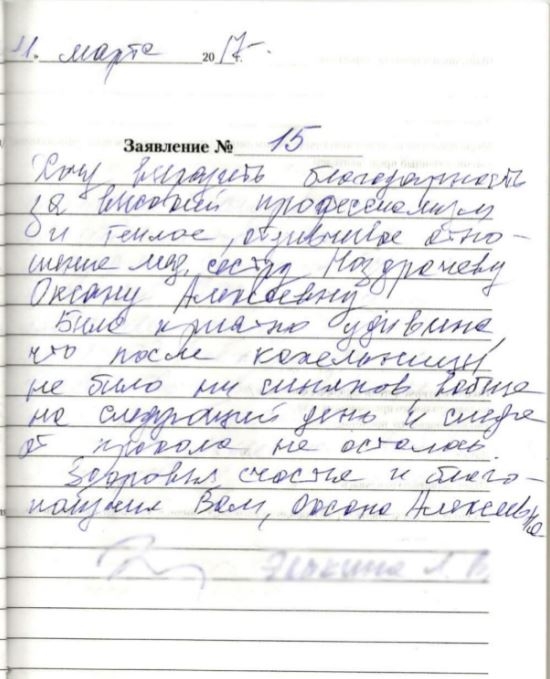 11. марта 2017г.
Заявление № 15
Хочу выразить благодарность
за высокий профессионализм
и теплое, отзывчивое отно-
шение мед. сестру Ноздрачеву
Оксану Алексеевну
Была приятно удивлена,
что после капельницы
не было ни синяков вобще
на следующий день и следа
от прокола не осталось.
Здоровья, счастья и благо-
получия Вам, Оксана Алексеевна